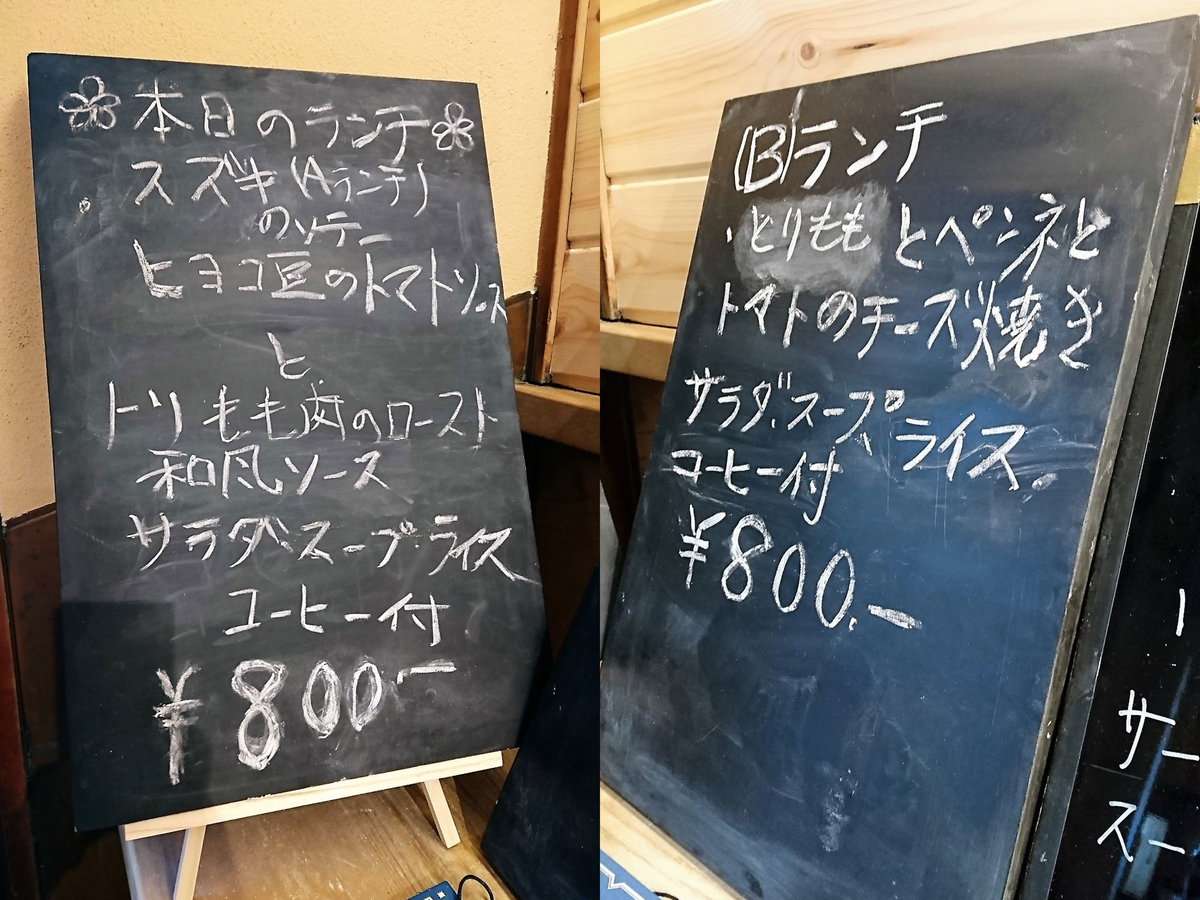 本日のランチ
・スズキ(Aランチ)
のソテー
ヒヨコ豆のトマトソース
と
トリもも肉のロースト
和風ソース
サラダ、スープ、ライス
コーヒー付
¥800.-
(B)ランチ
・とりももとペンネと
トマトのチーズ焼き
サラダ.スープ.ライス.
コーヒー付
¥800.-
サー
スー